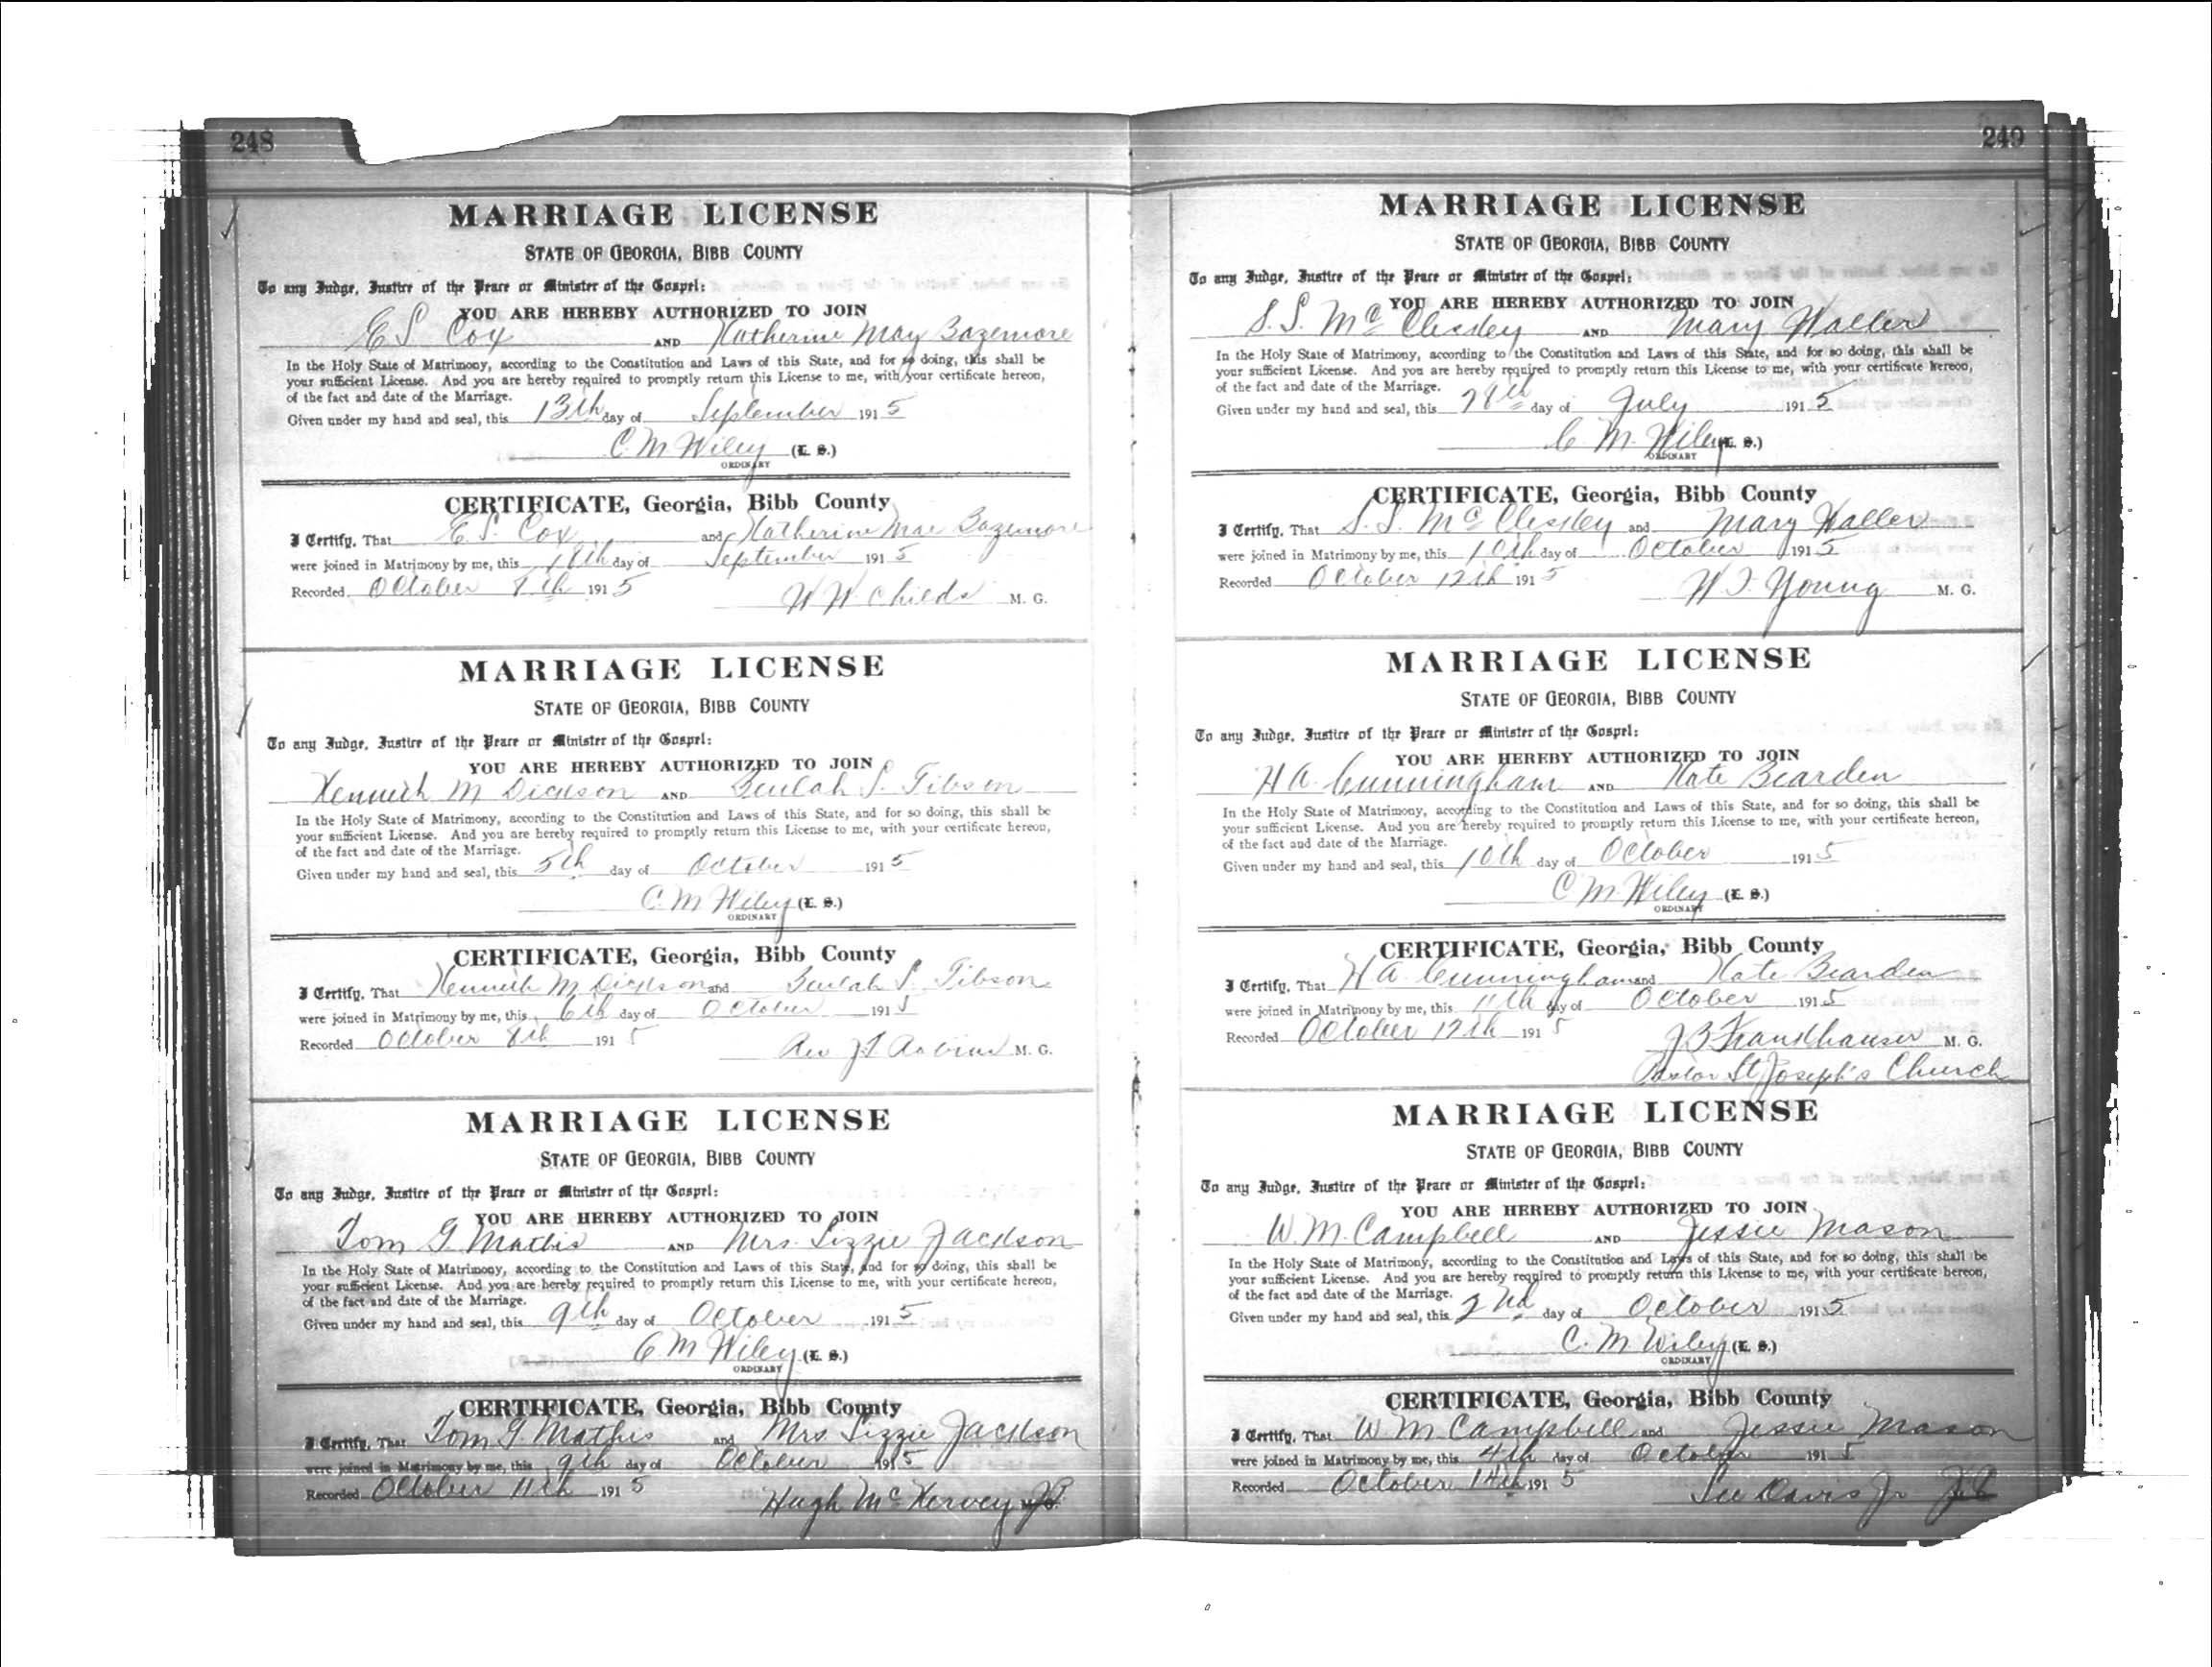 248
MARRIAGE LICENSE
STATE OF GEORGIA, BIBB COUNTY
To any Judge, Justice of the Peace or Minister of the Gospel:
YOU ARE HEREBY AUTHORIZED TO JOIN
E S Cox AND Katherine May Bazemore
In the Holy State of Matrimony, according to the Constitution and Laws of this State, and for so doing, this shall be
your sufficient License. And you are hereby required to promptly return this License to me, with your certificate hereon,
of the fact and date of the Marriage.
Given under my hand and seal, this 13th day of September 1915
C M Wiley (L. S.)
ORDINARY
CERTIFICATE, Georgia, Bibb County
I Certify, That E. S. Cox and Katherine Mae Bazemore
were joined in Matrimony by me, this 18th day of September 1915
Recorded October 8th 1915
W W Childs M. G.
MARRIAGE LICENSE
STATE OF GEORGIA, BIBB COUNTY
To any Judge, Justice of the Peace or Minister of the Gospel:
YOU ARE HEREBY AUTHORIZED TO JOIN
Kenneth M Dickson AND Beulah S. Tibson
In the Holy State of Matrimony, according to the Constitution and Laws of this State, and for so doing, this shall be
your sufficient License. And you are hereby required to promptly return this License to me, with your certificate hereon,
of the fact and date of the Marriage.
Given under my hand and seal, this 5th day of October 1915
C. M Wiley (L. S.)
ORDINARY
CERTIFICATE, Georgia, Bibb County
I Certify, That Kenneth M Dickson and Beulah S. Tibson
were joined in Matrimony by me, this 6th day of October 1915
Recorded October 8th 1915
Rev M. G.
MARRIAGE LICENSE
STATE OF GEORGIA, BIBB COUNTY
To any Judge, Justice of the Peace or Minister of the Gospel:
YOU ARE HEREBY AUTHORIZED TO JOIN
Tom G. Mathis AND Mrs. Lizzie Jackson
In the Holy State of Matrimony, according to the Constitution and Laws of this State, and for so doing, this shall be
your sufficient License. And you are hereby required to promptly return this License to me, with your certificate hereon,
of the fact and date of the Marriage.
Given under my hand and seal, this 9th day of October 1915
C M Wiley (L. S.)
ORDINARY
CERTIFICATE, Georgia, Bibb County
I Certify, That Tom G Mathis and Mrs Lizzie Jackson
were joined in Matrimony by me, this 9th day of October 1915
Recorded October 11th 1915
Hugh McKervey JP
249
MARRIAGE LICENSE
STATE OF GEORGIA, BIBB COUNTY
To any Judge, Justice of the Peace or Minister of the Gospel:
YOU ARE HEREBY AUTHORIZED TO JOIN
S. S. AND Mary Waller
In the Holy State of Matrimony, according to the Constitution and Laws of this State, and for so doing, this shall be
your sufficient License. And you are hereby required to promptly return this License to me, with your certificate hereon,
of the fact and date of the Marriage.
Given under my hand and seal, this 28th day of July 1915
C. M. Wiley (L. S.)
ORDINARY
CERTIFICATE, Georgia, Bibb County
I Certify, That S. S. and Mary Waller
were joined in Matrimony by me, this 10th day of October 1915
Recorded October 12th 1915
Young M. G.
MARRIAGE LICENSE
STATE OF GEORGIA, BIBB COUNTY
To any Judge, Justice of the Peace or Minister of the Gospel:
YOU ARE HEREBY AUTHORIZED TO JOIN
H A. Cunningham AND Kate Bearden
In the Holy State of Matrimony, according to the Constitution and Laws of this State, and for so doing, this shall be
your sufficient License. And you are hereby required to promptly return this License to me, with your certificate hereon,
of the fact and date of the Marriage.
Given under my hand and seal, this 10th day of October 1915
C M. Wiley (L. S.)
ORDINARY
CERTIFICATE, Georgia, Bibb County
I Certify, That H A. Cunningham and Kate Bearden
were joined in Matrimony by me, this 11th day of October 1915
Recorded October 12th 1915
J B Frankhauser M. G.
Pastor St Joseph's Church
MARRIAGE LICENSE
STATE OF GEORGIA, BIBB COUNTY
To any Judge, Justice of the Peace or Minister of the Gospel:
YOU ARE HEREBY AUTHORIZED TO JOIN
W. M. Campbell AND Jessie Mason
In the Holy State of Matrimony, according to the Constitution and Laws of this State, and for so doing, this shall be
your sufficient License. And you are hereby required to promptly return this License to me, with your certificate hereon,
of the fact and date of the Marriage.
Given under my hand and seal, this 2nd day of October 1915
C. M. Wiley (L. S.)
ORDINARY
CERTIFICATE, Georgia, Bibb County
I Certify, That W M Campbell and Jessie Mason
were joined in Matrimony by me, this 4th day of October 1915
Recorded October 14th 1915
Lee Davis Jr